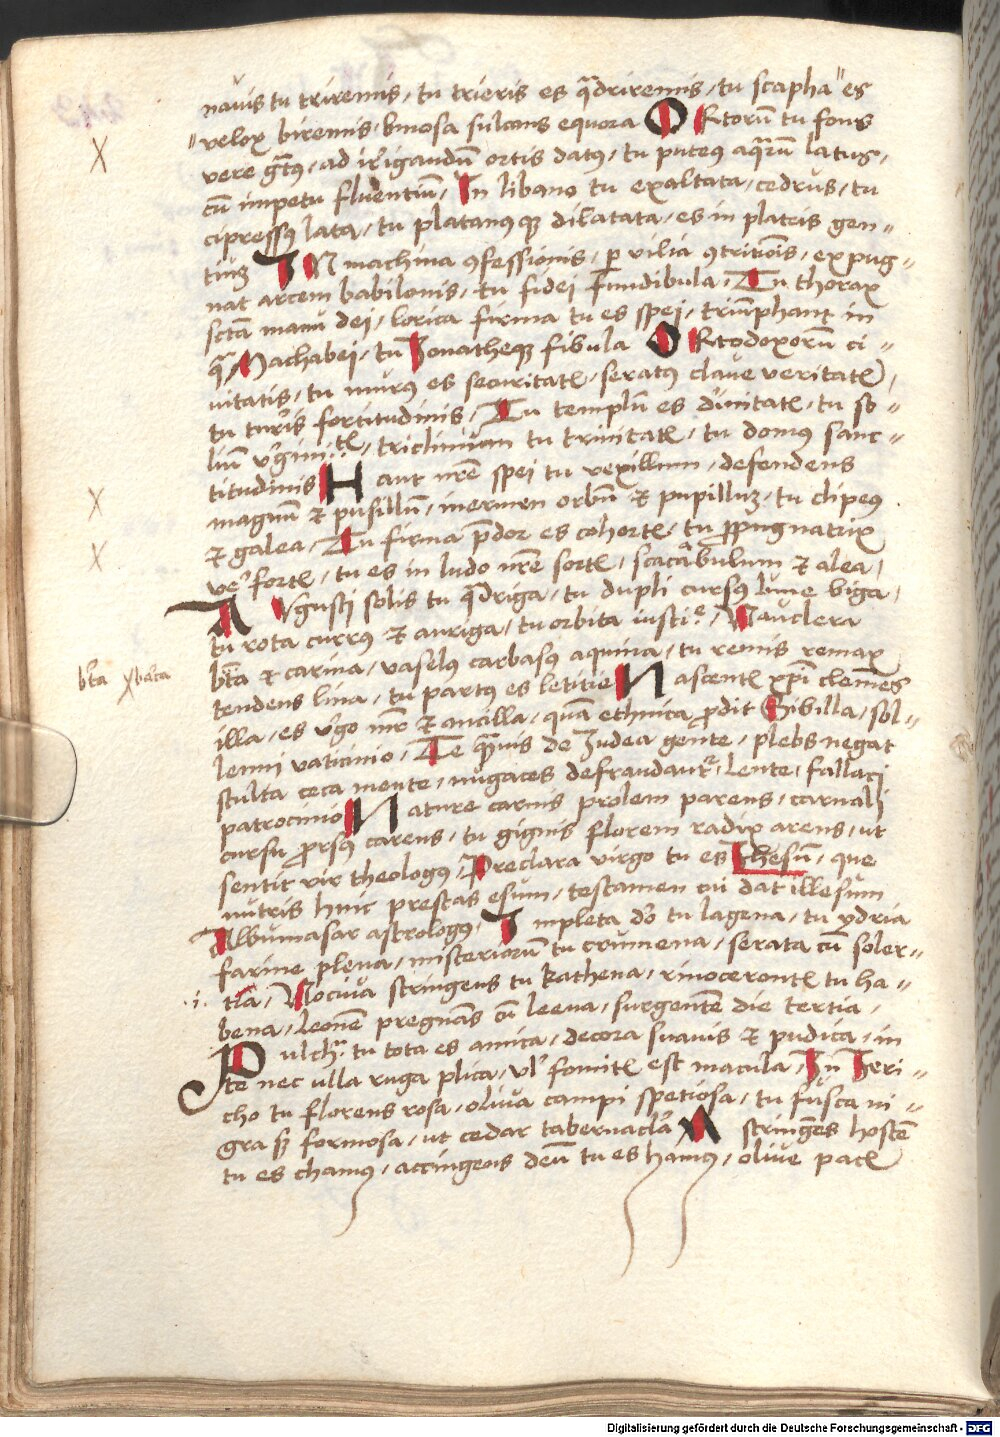 nauis tu triremis, tu trieris es q̃driremis, tu scapha es
velox biremis, bmosa sulcans equora ORtorũ tu fons
vere grãtꝰ, ad irrigandũ ortis datꝰ, tu puteus aq̃rũ latus,
cũ impetu fluentiũ, In libano tu exaltata, cedrus, tu
cipressꝰ lata, tu platanusqꝫ dilatata, es in plateis gen=
tiũ IN machina ꝯfessionis, ꝑ vilia ꝯtritiõis, expug=
nat arcem babilonis, tu fidei Fundibula, Tu thorax
sctã manu dei, lorica firma tu es spei, triũphant in
q̃ Machabei, tu Jonatheqꝫ fibula ORtodoxorũ ci=
uitatis, tu murꝰ es securitatꝭ, seratꝰ claue veritatꝭ,
tu turris fortitudinis, Tu templũ es diuinitatꝭ, tu so=
liũ virginitꝭ, triclinium tu trinitatꝭ, tu domus sanc=
titudinis Haut nrẽ spei tu vexillum, defendens
magnũ et pusillũ, inermen orbũ et pupillum, tu clipeꝰ
et galea, Tu firma p̃dor es cohortꝭ, tu ꝓpugnatrix
ver fortꝭ, tu es in ludo nrẽ sortꝭ, scacabulum et alea,
AVgusti solis tu q̃driga, tu dupli cursus lune biga,
tu rota currꝰ et auriga, tu orbita iustitie, Nauclera
bta et carina, vaselꝰ carbasꝰ aquina, tu remis remax
bta xbata
tendens lina, tu partꝰ es letitie Nascentꝭ xpi clemẽs
illa, es vgo mr̃e et ancilla, quã ethnica ꝓdit Sibilla, sol=
lenni vaticinio, Te q̃muis de Judea gente, plebs negat
stulta ceca mente, nugaces defraudant, Lente, fallaci
patrocinio Nature carnis prolem parens, carnali
cursu ꝓrsꝰ carens, tu gignis florem radix arens, ut
sentit vir theologus, Preclara virgo tu es Jhesũ, que
nutris huic prestas esum, testamen cui dat illesum
Albumasar astrologꝰ, Impleta dõ tu lagena, tu ydria
farine plena, misteriorũ tu crumena, serata cũ soler=
.i. tia, Nociua stringens tu kathena, rinocerontꝭ tu ha=
bena, Leonẽ pregnãs cũ leena, surgentẽ die tertia,
Pulchr̃ tu tota es amica, decora suauis et pudica, in
te nec ulla ruga plica, vl fomitꝭ est macula, In Jeri=
cho tu florens rosa, oliua campi spetiosa, tu fusca ni=
gra sꝫ formosa, ut cedar tabernacla Astringẽs hostẽ
tu es chamꝰ, accingens deũ tu es hamꝰ, oliue pacꝭ